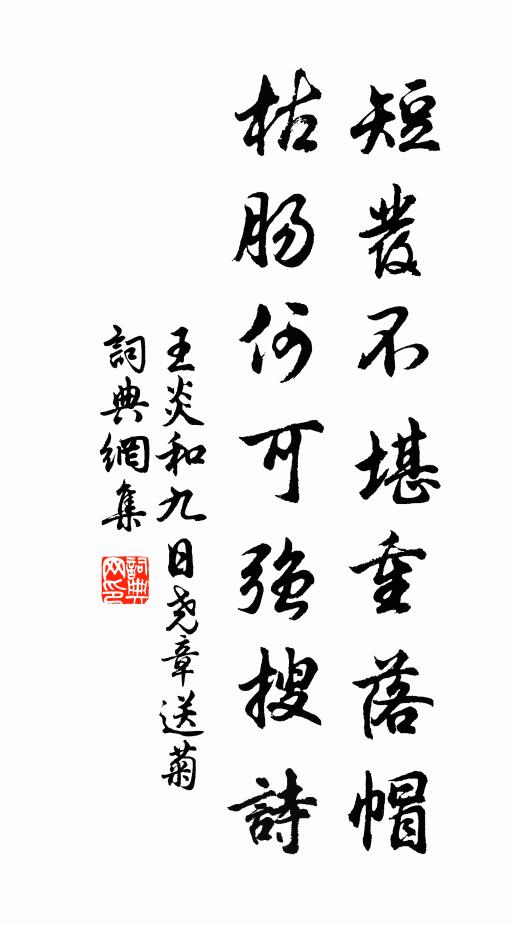 短發不堪重落帽
枯肠何可強搜詩
王炎和九日尧章送菊
詞典網集
詞典网印